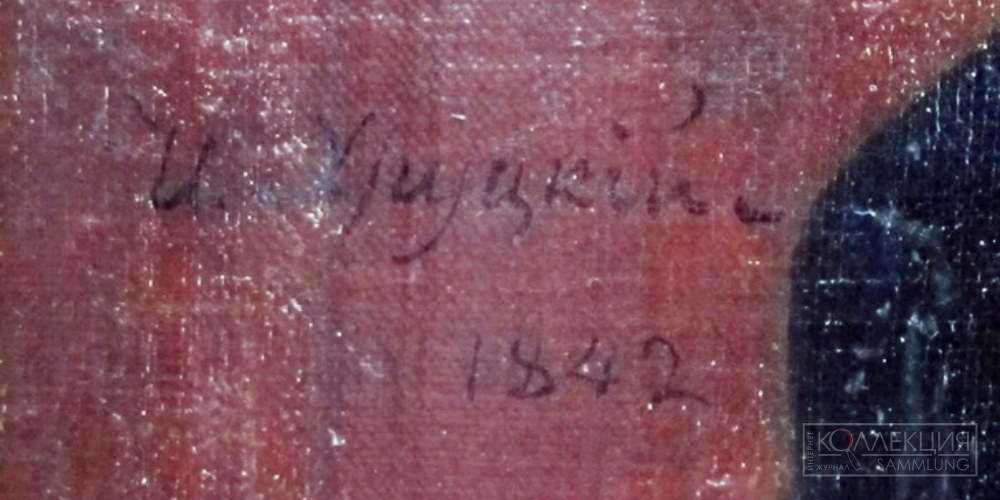 И. Хруцкій
1842
ИНТЕРНЕТ
КОЛЛЕКЦИЯ
ЖУРНАЛ SAMMLUNG